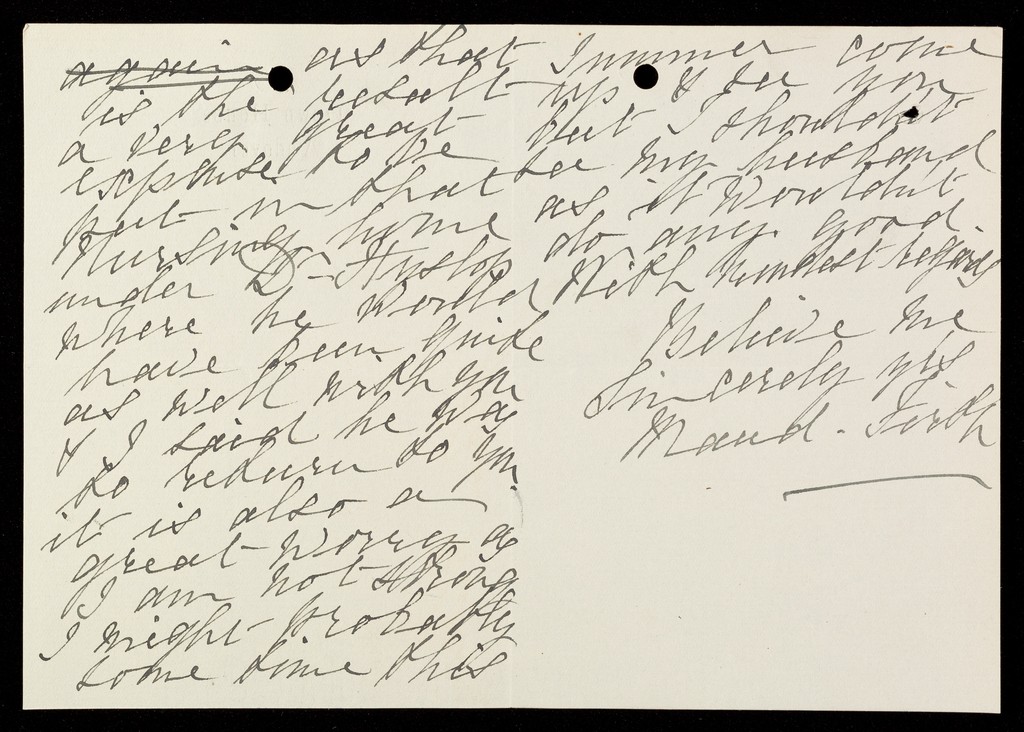 again as that
is the result
a very great
expense to be
put in that
Nursing home
under Dr Hyslop
where he would
have been quite
as well with you
& I said he was
to return to you.
it is also a
great worry as
I am not strong
I might probably
some time this
Summer come
up & see you
but I shouldn't
see my husband
as it wouldn't
do any good.
With kindest regards
Believe me
Sincerely yrs
Maud. Firth